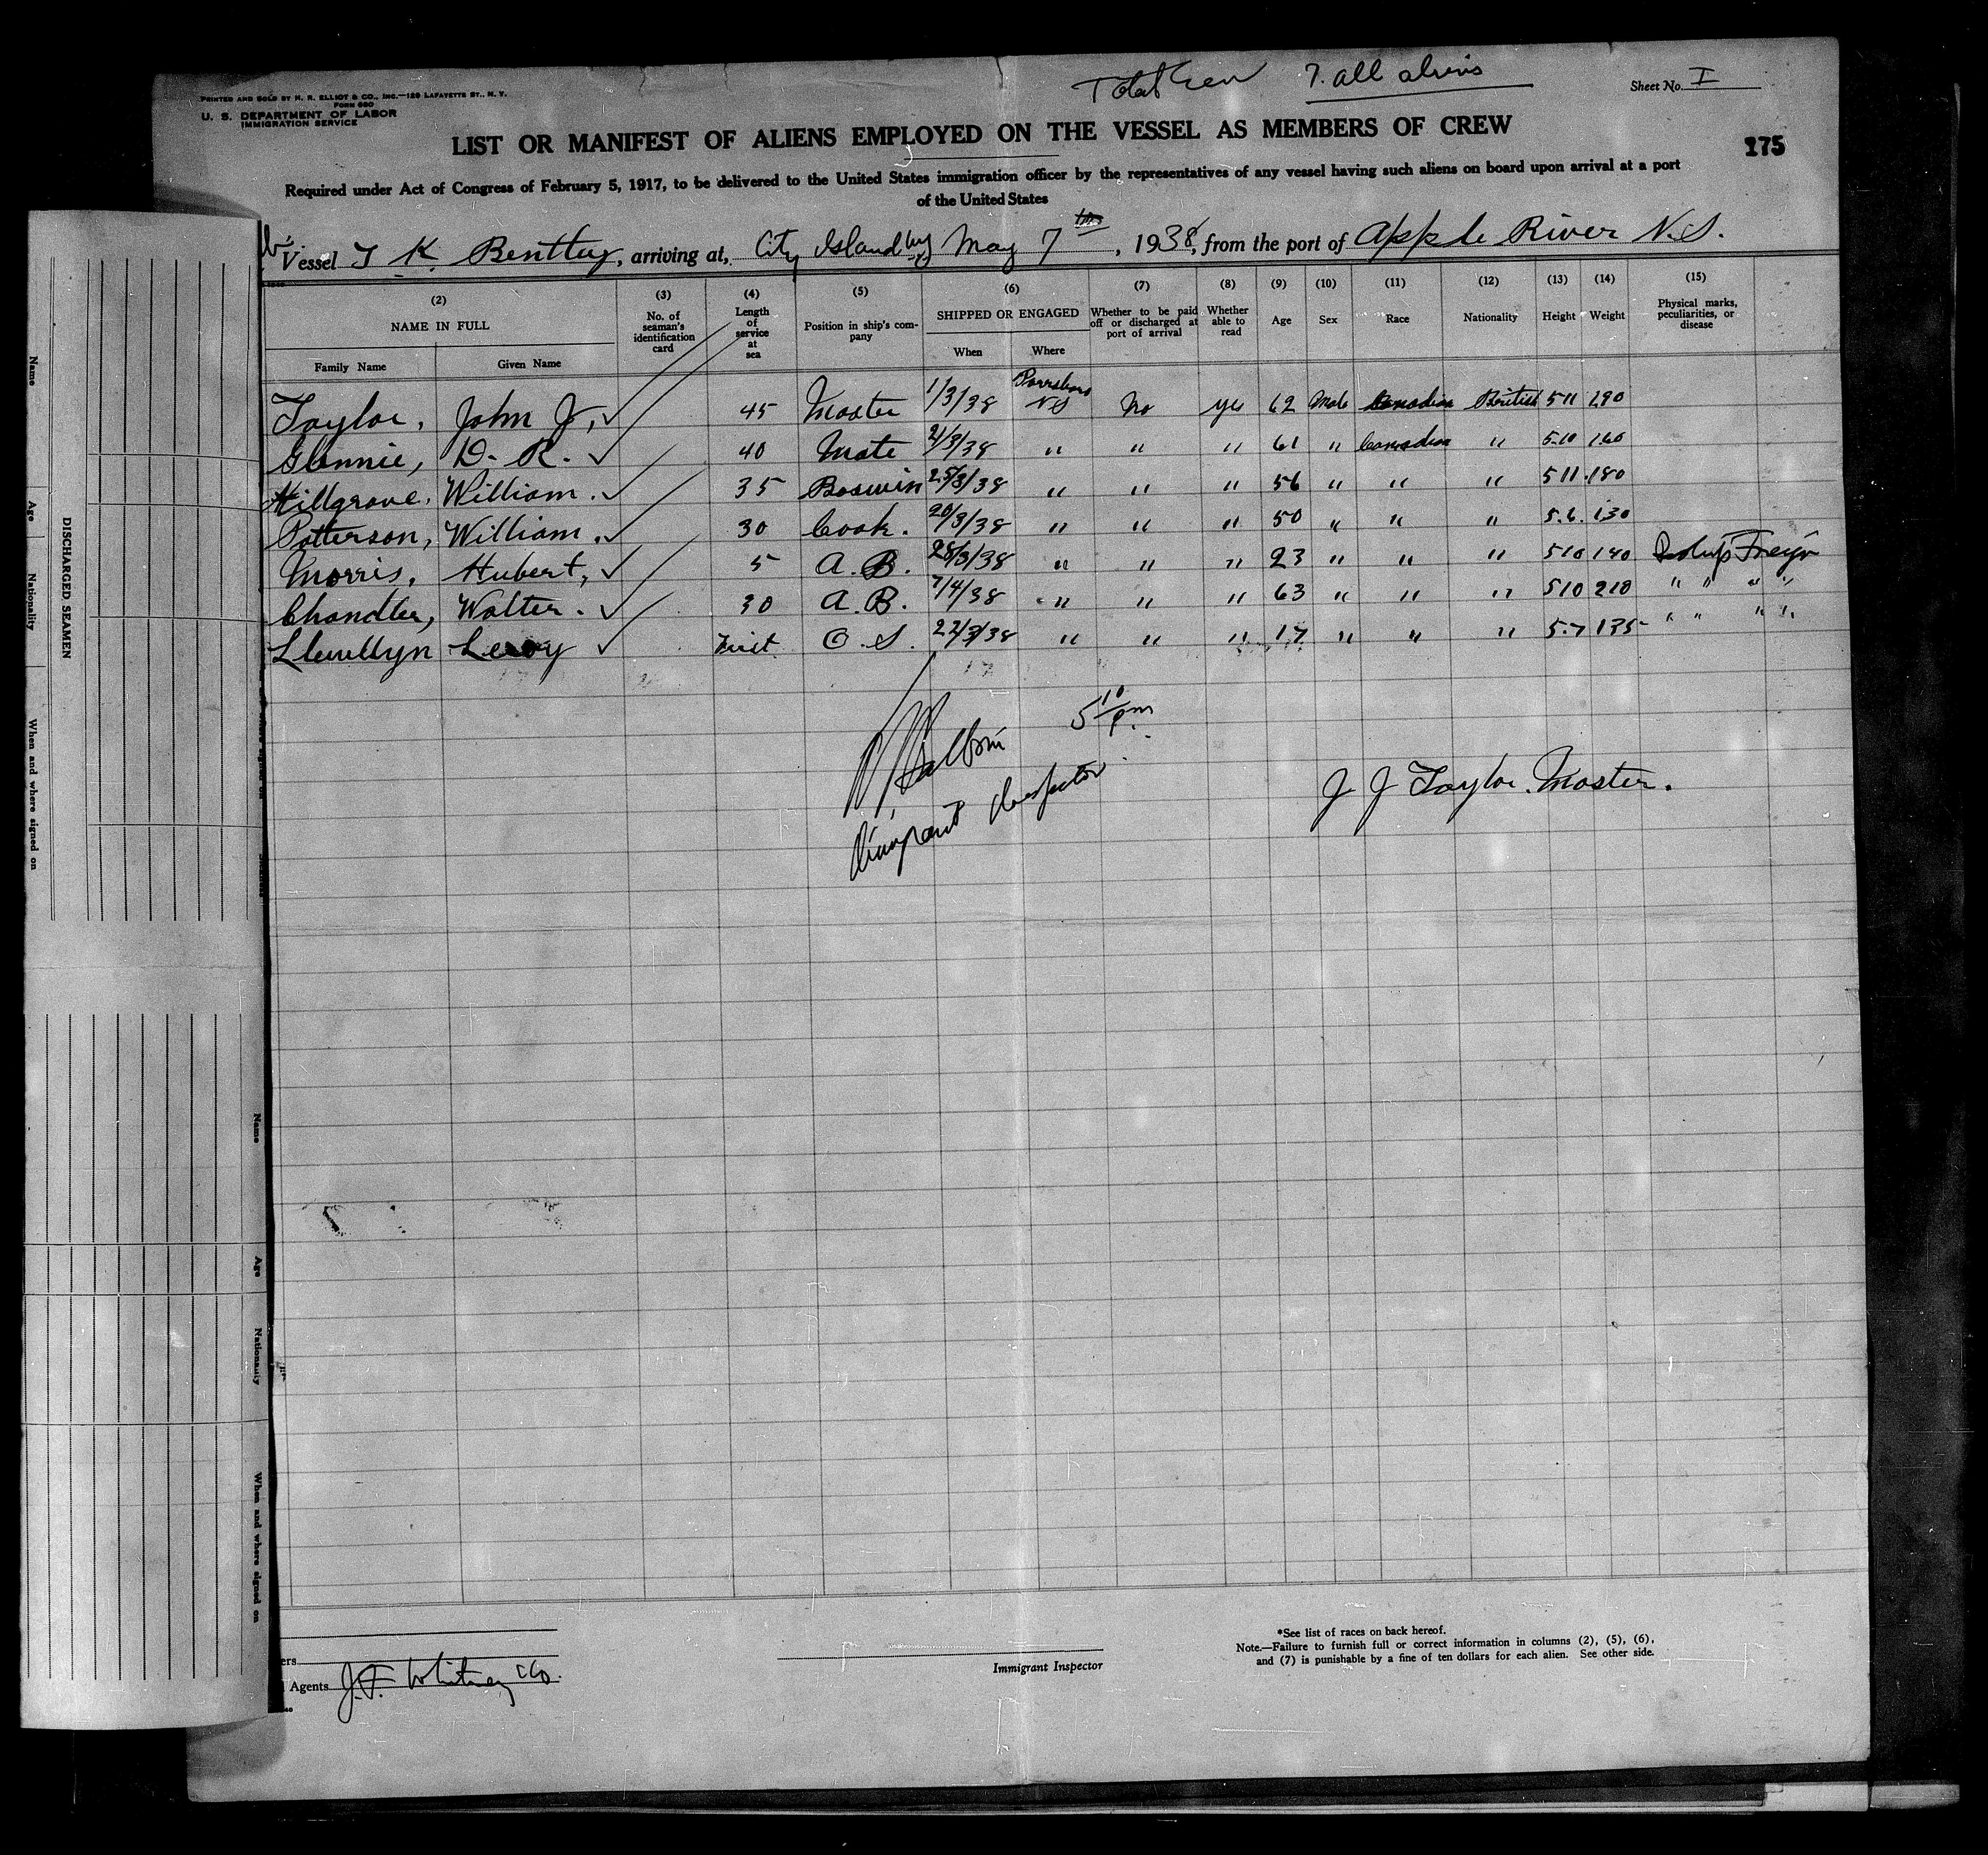 Total Crew 7. all aliens
Sheet No. I
PRINTED AND SOLD BY H. R. ELLIOT & CO., INC.—129 LAFAYETTE ST., N. Y.
FORM 680
U. S. DEPARTMENT OF LABOR
IMMIGRATION SERVICE
LIST OR MANIFEST OF ALIENS EMPLOYED ON THE VESSEL AS MEMBERS OF CREW
175
Required under Act of Congress of February 5, 1917, to be delivered to the United States immigration officer by the representatives of any vessel having such aliens on board upon arrival at a port
of the United States
Vessel T K Bentley, arriving at, City Island NY May 7th, 1938, from the port of Apple River N.S.
(2) (3) (4) (5) (6) (7) (8) (9) (10) (11) (12) (13) (14) (15)
NAME IN FULL No. of seaman's identification card Length of service at sea Position in ship's company SHIPPED OR ENGAGED Whether to be paid off or discharged at port of arrival Whether able to read Age Sex Race Nationality Height Weight Physical marks, peculiarities, or disease
Family Name Given Name When Where
Taylor, John J, 45 Master 1/3/38 Parrsboro NS No yes 62 Male Canadian British 5 11 190
Glennie, D. R. 40 Mate 21/3/38 " " " 61 " Canadian " 5.10 160
Hillgrove, William. 35 Boswin 25/3/38 " " " 56 " " " 5 11 180
Patterson, William. 30 Cook. 20/3/38 " " " 50 " " " 5.6. 130
Morris, Hubert, 5 A. B. 28/3/38 " " " 23 " " " 5 10 140
Chandler, Walter. 30 A. B. 7/4/38 " " " 63 " " " 5 10 210 " " " "
Llewellyn Leroy First O. S. 22/3/38 " " " 17 " " " 5.7 135 " " " "
5 10 pm
Immigrant Inspector
J J Taylor. Master.
DISCHARGED SEAMEN
Name Age Nationality When and where signed on
Name Age Nationality When and where signed on
Agents J. F. Whitney & Co.
Immigrant Inspector
*See list of races on back hereof.
Note.—Failure to furnish full or correct information in columns (2), (5), (6),
and (7) is punishable by a fine of ten dollars for each alien. See other side.